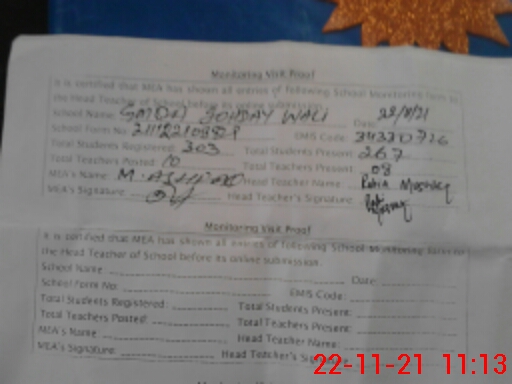 Monitoring Visit Proof
It is certified that MEA has shown all entries of following School Monitoring Form to
the Head Teacher of School before its online submission.
School Name: GMDA WALI Date: 22/11/21
School Form No: EMIS Code: 34330726
Total Students Registered: 303 Total Students Present: 267
Total Teachers Posted: 10 Total Teachers Present: 08
MEA's Name: M. Head Teacher Name: Rubia Mushtaq
MEA's Signature Head Teacher's Signature
Monitoring Visit Proof
It is certified that MEA has shown all entries of following School Monitoring Form to
the Head Teacher of School before its online submission.
School Name: Date:
School Form No: EMIS Code:
Total Students Registered: Total Students Present:
Total Teachers Posted: Total Teachers Present:
MEA's Name: Head Teacher Name:
MEA's Signature: Head Teacher's Signature
22-11-21 11:13